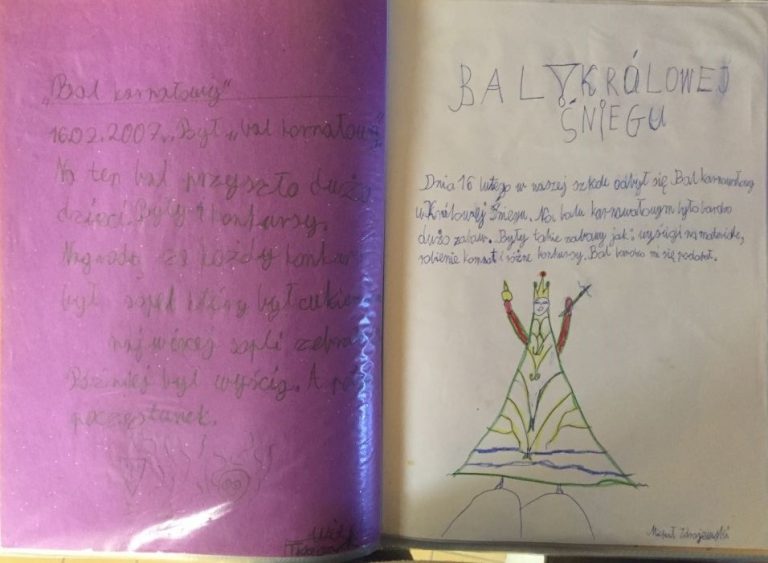 „Bal karnałowy"
16.02.2007r. Był „bal karnałowy"
Na ten bal przyszło dużo
dzieci. Były 4 konkursy.
Nagrodą za każdy konkurs
był sopel który był cukier
najwięcej sopli zebra
Później był wyścig. A pó
poczęstunek.
BAL U KRÓLOWEJ
ŚNIEGU
Dnia 16 lutego w naszej szkole odbył się Bal karnawałowy
u Królowej Śniegu. Na balu karnawałowym było bardzo
dużo zabaw. Były takie zabawy jak: wyścigi na
robienie i różne konkursy. Bal bardzo mi się podobał.
Michał